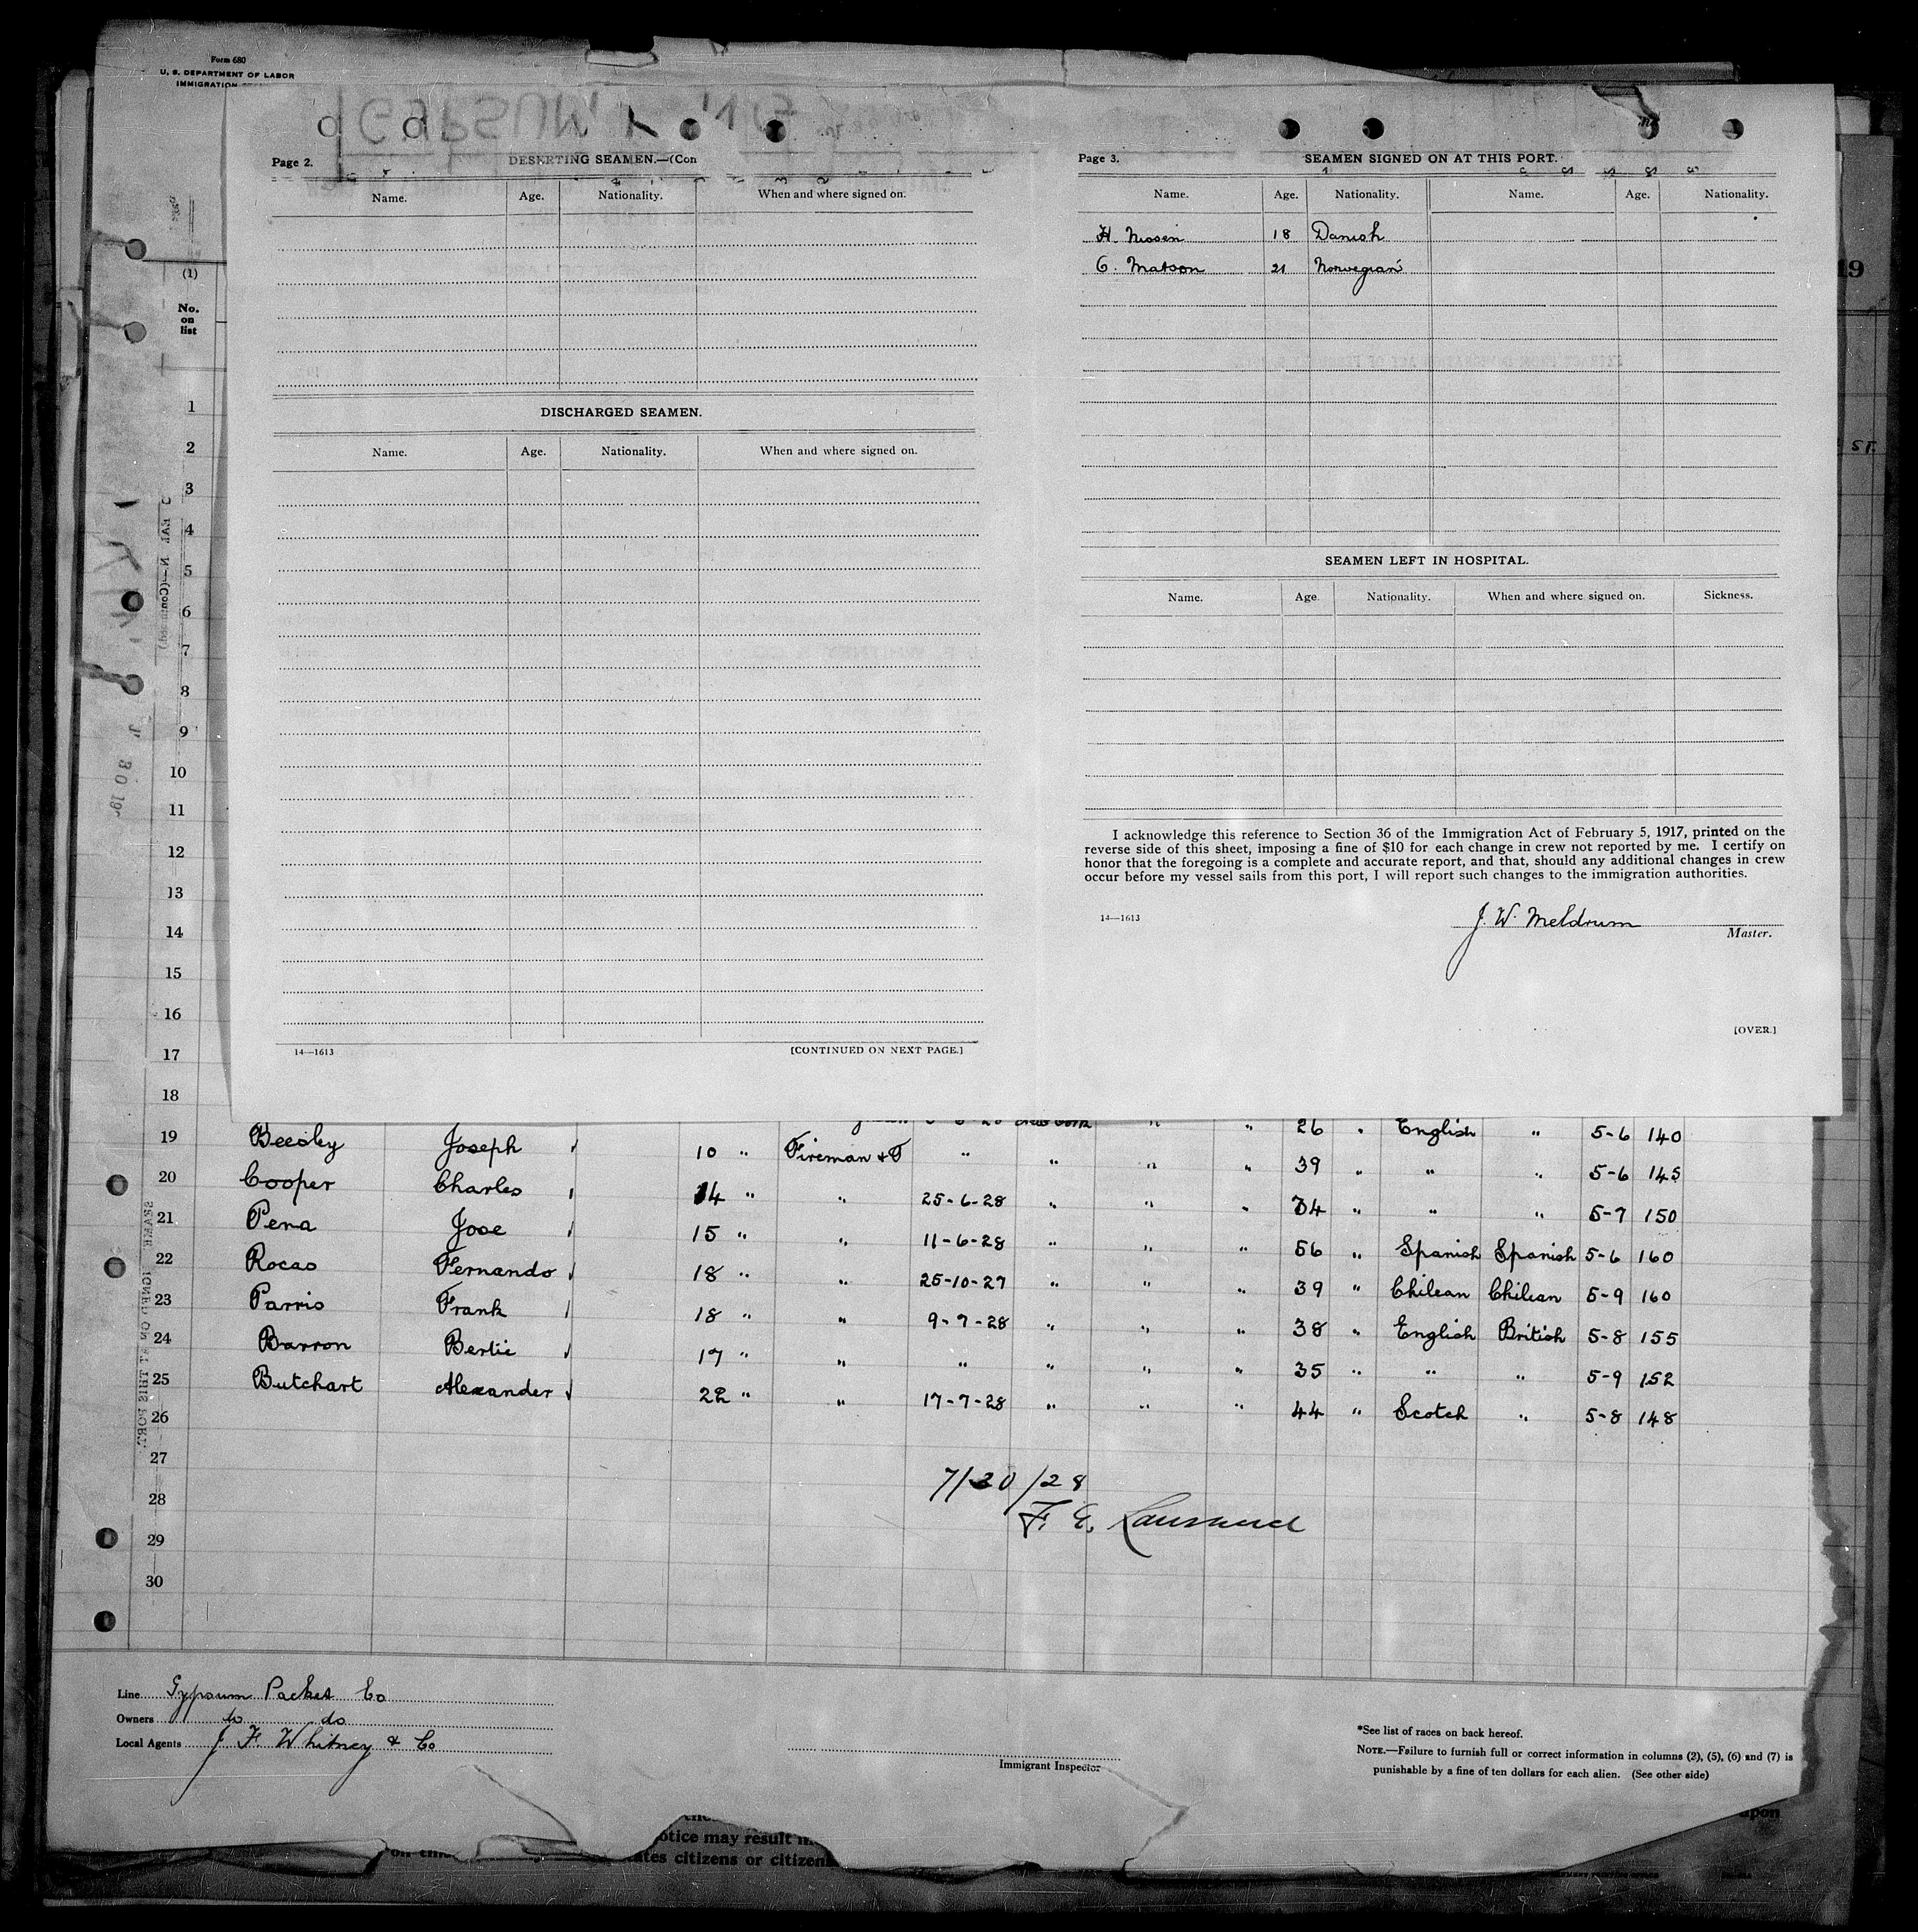 Form 680
U. S. DEPARTMENT OF LABOR
IMMIGRATION
Page 2. DESERTING SEAMEN.—(Con
Name. Age. Nationality. When and where signed on.
DISCHARGED SEAMEN.
Name. Age. Nationality. When and where signed on.
14—1613 [CONTINUED ON NEXT PAGE.]
Page 3. SEAMEN SIGNED ON AT THIS PORT.
Name. Age. Nationality. Name. Age. Nationality.
H. Nissen 18 Danish
C. Matson 21 Norwegian
SEAMEN LEFT IN HOSPITAL.
Name. Age Nationality. When and where signed on. Sickness.
I acknowledge this reference to Section 36 of the Immigration Act of February 5, 1917, printed on the
reverse side of this sheet, imposing a fine of $10 for each change in crew not reported by me. I certify on
honor that the foregoing is a complete and accurate report, and that, should any additional changes in crew
occur before my vessel sails from this port, I will report such changes to the immigration authorities.
14—1613 J. W. Meldrum
Master.
[OVER.]
19
(1)
No.
on
list
1
2
3
4
5
6
7
8
9
10
11
12
13
14
15
16
17
18
26 " English " 5-6 140
19 Beesley Joseph 10 " Fireman & T " " " " 39 " " " 5-6 145
20 Cooper Charles 14 " " 25-6-28 " " " 34 " " " 5-7 150
21 Pena Jose 15 " " 11-6-28 " " " 56 " Spanish Spanish 5-6 160
22 Rocas Fernando 18 " " 25-10-27 " " " 39 " Chilean Chilean 5-9 160
23 Parris Frank 18 " " 9-7-28 " " " 38 " English British 5-8 155
24 Barron Bertie 17 " " " " " " 35 " " " 5-9 152
25 Butchart Alexander 22 " " 17-7-28 " " " 44 " Scotch " 5-8 148
26
27
28
29
30
7/20/28
F. E.
Line Gypsum Packet Co
Owners do do
Local Agents J. F. Whitney & Co
Immigrant Inspector
*See list of races on back hereof.
NOTE.—Failure to furnish full or correct information in columns (2), (5), (6) and (7) is
punishable by a fine of ten dollars for each alien. (See other side)
upon
otice may result in
ates citizens or citizen